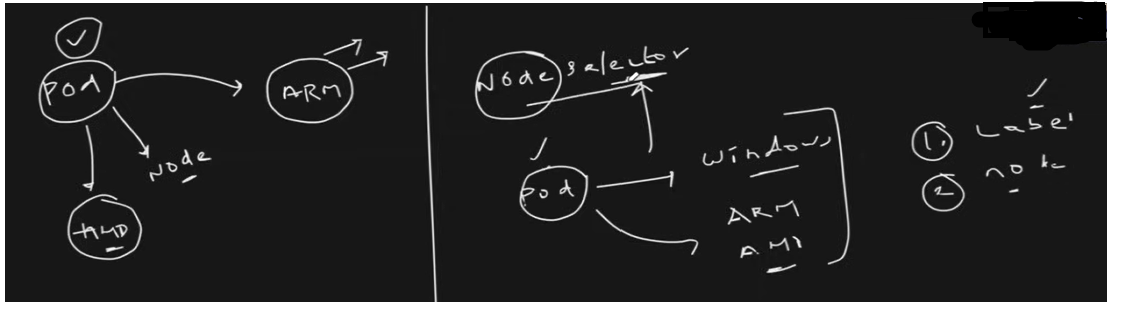 Pod
ARM
Node
AMD
Node selector
Pod
Windows
ARM
AMD
1. Label
2